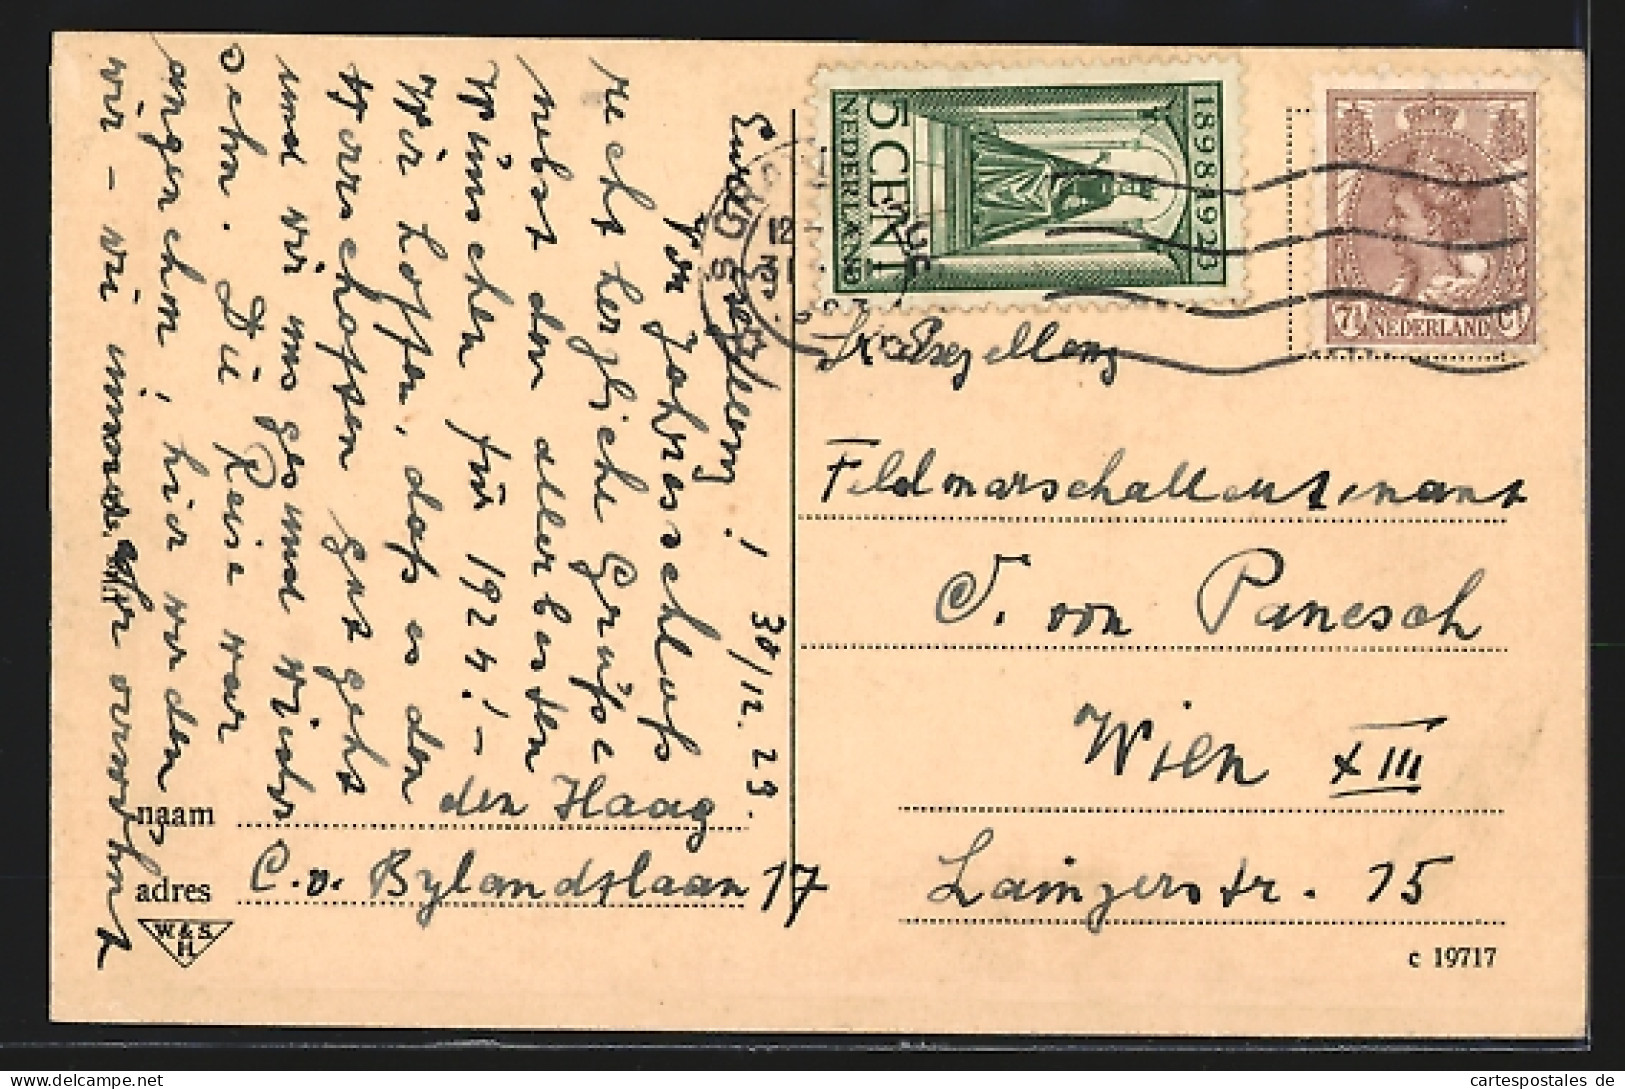 30/12. 23.
Euer Exzellenz!
Zum Jahresschluß
recht herzliche Grüße
nebst den allerbesten
Wünschen für 1924! –
Wir hoffen, daß es den
Herrschaften gut geht
und wir uns gesund wieder
sehn. Die Reise war
angenehm, hier wurden
wir – wie immer sehr verwöhnt
naam den Haag
adres C. v. Bylandtlaan 17
W. & S.
H.
5 CENT
NEDERLAND
1898 1923
7½ NEDERLAND Ct
12
31
Sr. Exzellenz
Feldmarschalleutenant
V. von Panesch
Wien XIII
Lainzerstr. 15
c 19717
cartespostales de